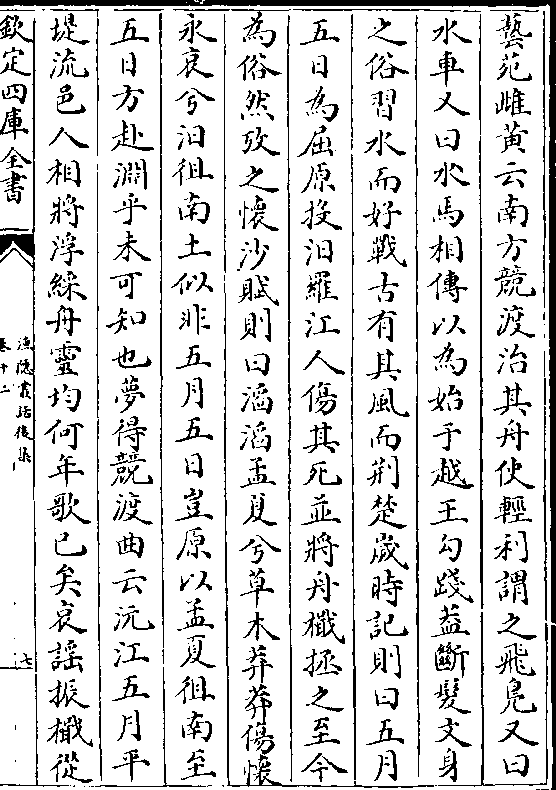 藝苑雌黄云南方競渡治其舟使輕利謂之飛鳬又曰
水車又曰水馬相傳以為始于越王勾踐葢斷髮文身
之俗習水而好戰古有其風而荆楚歲時記則曰五月
五日為屈原投汨羅江人傷其死並將舟檝拯之至今
為俗然攷之懷沙賦則曰滔滔孟夏兮草木莽莽傷懷
永哀兮汨徂南土似非五月五日豈原以孟夏徂南至
五日方赴淵乎未可知也夢得競渡曲云沅江五月平
堤流邑人相將浮綵舟靈均何年歌已矣哀謡振檝從
欽定四庫全書
漁隱叢話後集
卷十二
七